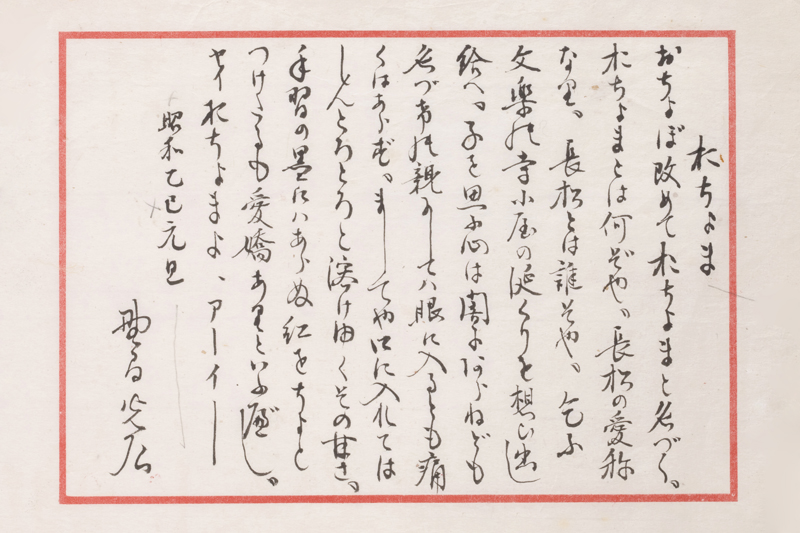 おちよま
おちよぼ改めておちよまと名づく。
おちよまとは何ぞや、長松の愛称
なり、長松とは誰ぞや、乞ふ
文楽の寺小屋の涎くりを想ひ出し
給へ、子を思ふ心は闇にあらねども
名づけの親としては眼に入るとも痛
くはあらず、ましてや口に入れては
しんとろとろと溶けゆくその甘さ、
手習の墨にはあらぬ紅をちよと
つけたるも愛嬌ありといふべし。
サイおちよまよ、アーイー
昭和乙巳元旦